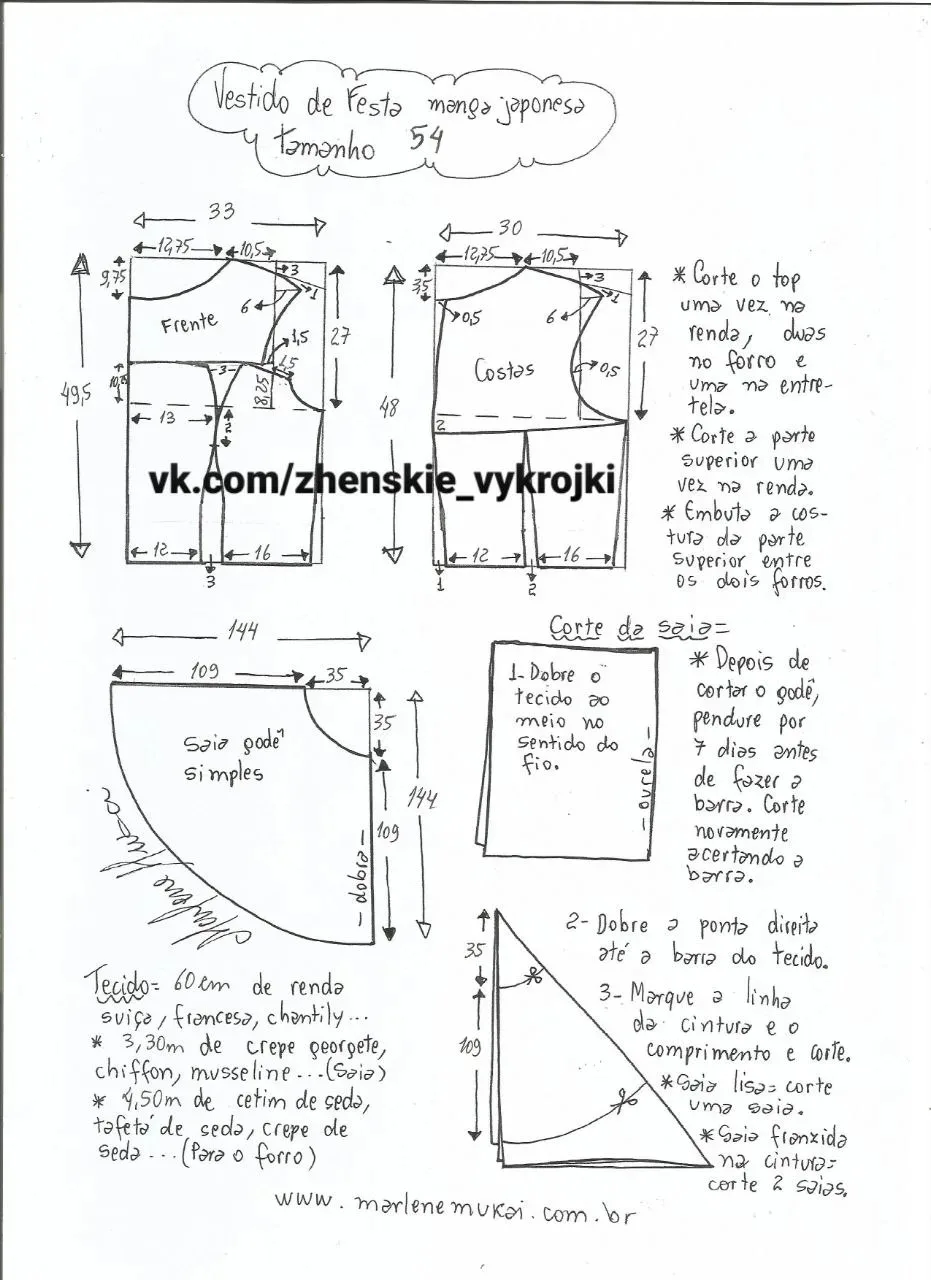 Vestido de Festa manga japonesa
tamanho 54
33
12,75
10,5
9,75
3
1
6
Frente
27
1,5
3
4,5
8,25
49,5
13
2
12
16
3
30
12,75
10,5
3,5
3
1
0,5
6
27
Costas
0,5
48
2
12
16
1
2
* Corte o top
uma vez na
renda, duas
no forro e
uma na entre-
tela.
* Corte a parte
superior uma
vez na renda.
* Embuta a cos-
tura da parte
superior entre
os dois forros.
vk.com/zhenskie_vykrojki
144
109
35
35
Saia godê
simples
144
109
-dobra-
Corte da saia=
1- Dobre o
tecido ao
meio no
sentido do
fio.
-ourela-
* Depois de
cortar o godê,
pendure por
7 dias antes
de fazer a
barra. Corte
novamente
acertando a
barra.
35
109
2- Dobre a ponta direita
até a barra do tecido.
3- Marque a linha
da cintura e o
comprimento e corte.
* Saia lisa= corte
uma saia.
* Saia franzida
na cintura=
corte 2 saias.
Tecido= 60cm de renda
suiça, francesa, chantily...
* 3,30m de crepe georgete,
chiffon, musseline...(Saia)
* 4,50m de cetim de seda,
tafetá de seda, crepe de
seda...(Para o forro)
www.marlenemukai.com.br